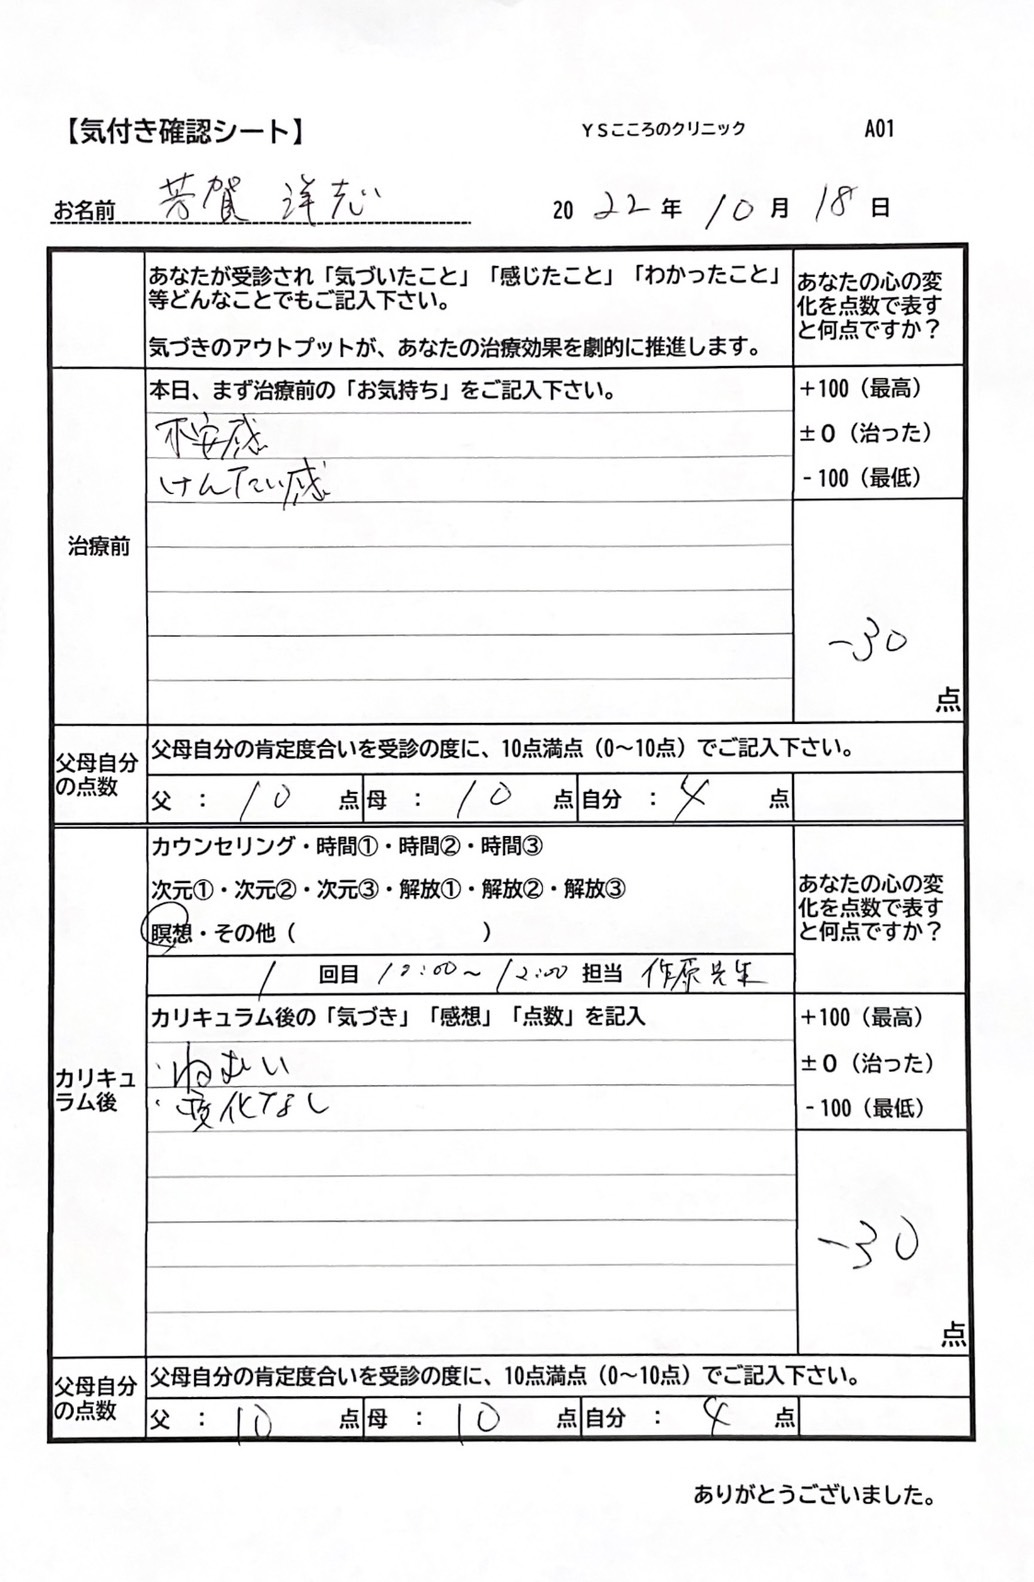 【気付き確認シート】 YSこころのクリニック A01
お名前 芳賀 洋志 2022年10月18日
あなたが受診され「気づいたこと」「感じたこと」「わかったこと」
等どんなことでもご記入下さい。
気づきのアウトプットが、あなたの治療効果を劇的に推進します。
あなたの心の変
化を点数で表す
と何点ですか？
治療前
本日、まず治療前の「お気持ち」をご記入下さい。
不安感
けんたい感
+100（最高）
±0（治った）
-100（最低）
-30
点
父母自分
の点数
父母自分の肯定度合いを受診の度に、10点満点（0～10点）でご記入下さい。
父 ： 10 点 母 ： 10 点 自分 ： 4 点
カウンセリング・時間①・時間②・時間③
次元①・次元②・次元③・解放①・解放②・解放③
瞑想・その他（ ）
1 回目 12:00～12:00 担当 作原先生
あなたの心の変
化を点数で表す
と何点ですか？
カリキュ
ラム後
カリキュラム後の「気づき」「感想」「点数」を記入
・ねむい
・変化なし
+100（最高）
±0（治った）
-100（最低）
-30
点
父母自分
の点数
父母自分の肯定度合いを受診の度に、10点満点（0～10点）でご記入下さい。
父 ： 10 点 母 ： 10 点 自分 ： 4 点
ありがとうございました。